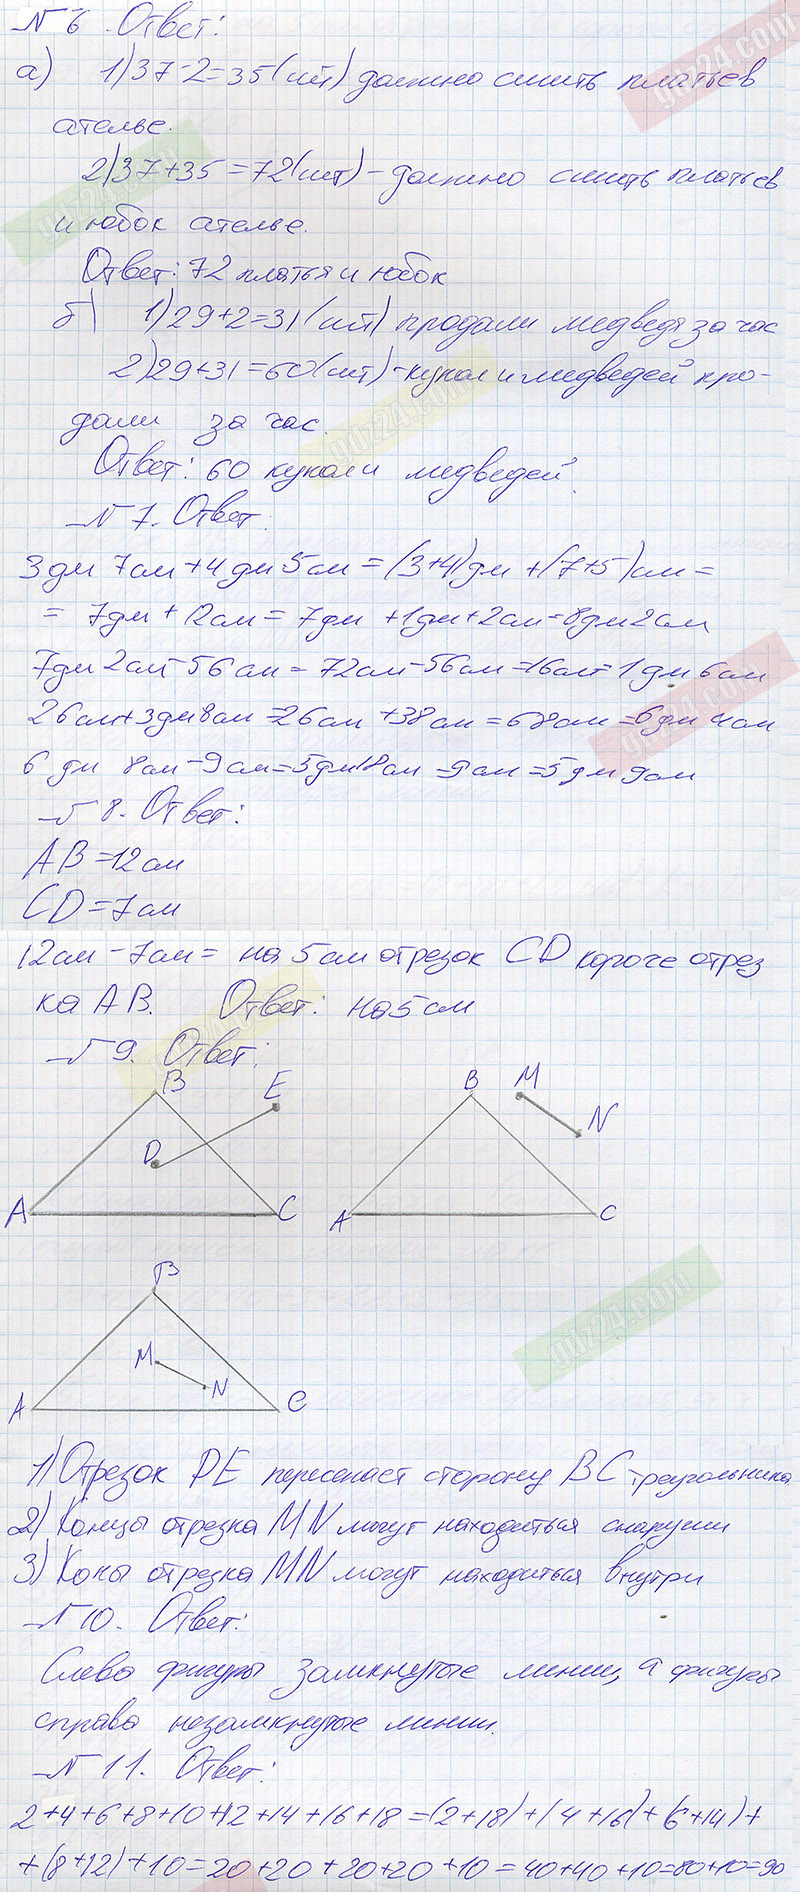 № 6. Ответ:
а) 1) 37-2=35(шт) должно сшить платьев
ателье.
2) 37+35=72(шт) - должно сшить платьев
и юбок ателье.
Ответ: 72 платья и юбок
б) 1) 29+2=31(шт) продали медведя за час
2) 29+31=60(шт) - кукол и медведей про-
дали за час.
Ответ: 60 кукол и медведей.
№ 7. Ответ.
3 дм 7 см + 4 дм 5 см = (3+4) дм + (7+5) см =
= 7 дм + 12 см = 7 дм + 1 дм + 2 см = 8 дм 2 см
7 дм 2 см - 56 см = 72 см - 56 см = 16 см = 1 дм 6 см
26 см + 3 дм 8 см = 26 см + 38 см = 68 см = 6 дм 4 см
6 дм 8 см - 9 см = 5 дм 18 см - 9 см = 5 дм 9 см
№ 8. Ответ:
AB = 12 см
CD = 7 см
12 см - 7 см = на 5 см отрезок CD короче отрез
ка AB. Ответ: на 5 см
№ 9. Ответ:
B E B M
D N
A C A C
B
M
N
A C
1) Отрезок DE пересекает сторону BC треугольника
2) Концы отрезка MN могут находиться снаружи
3) Коны отрезка MN могут находиться внутри
№ 10. Ответ:
Слева фигуры замкнутые линии, а фигуры
справа незамкнутые линии.
№ 11. Ответ:
2+4+6+8+10+12+14+16+18=(2+18)+(4+16)+(6+14)+
+(8+12)+10=20+20+20+20+10=40+40+10=80+10=90
gdz24.com
gdz24.com
gdz24.com
gdz24.com
gdz24.com